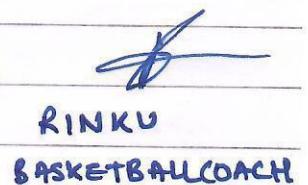 RINKU
BASKETBALLCOACH